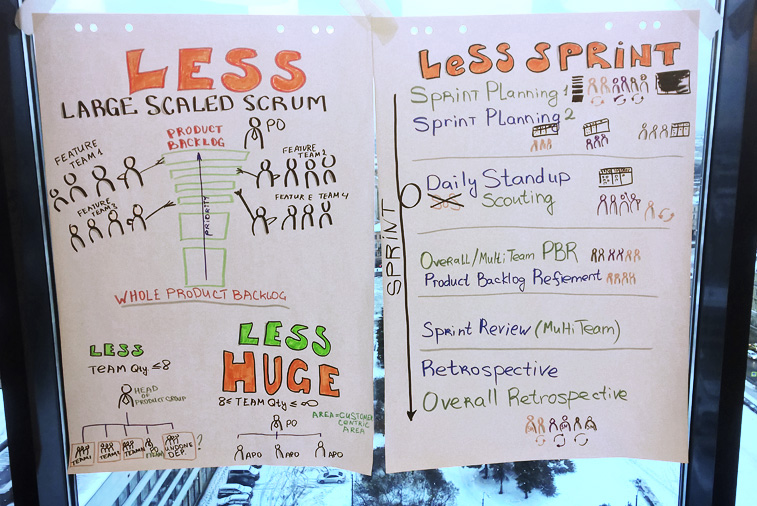 LESS
LARGE SCALED SCRUM
PRODUCT
BACKLOG
PO
FEATURE
TEAM 1
FEATURE
TEAM 2
FEATURE
TEAM 3
FEATURE TEAM 4
PRIORITY
WHOLE PRODUCT BACKLOG
LESS
TEAM Qty ≤8
HEAD
OF
PRODUCT GROUP
TEAM 1
TEAM 1
TEAM N
PO
TEAM
UNDONE
DEP.
?
LESS
HUGE
8≤ TEAM Qty ≤ ∞
AREA=CUSTOMER
CENTRIC
AREA
PO
APO
APO
APO
LeSS SPRINT
Sprint Planning 1
Sprint Planning 2
SPRINT
Daily Standup
Scouting
Overall/Multi Team PBR
Product Backlog Refiement
Sprint Review (Multi Team)
Retrospective
Overall Retrospective